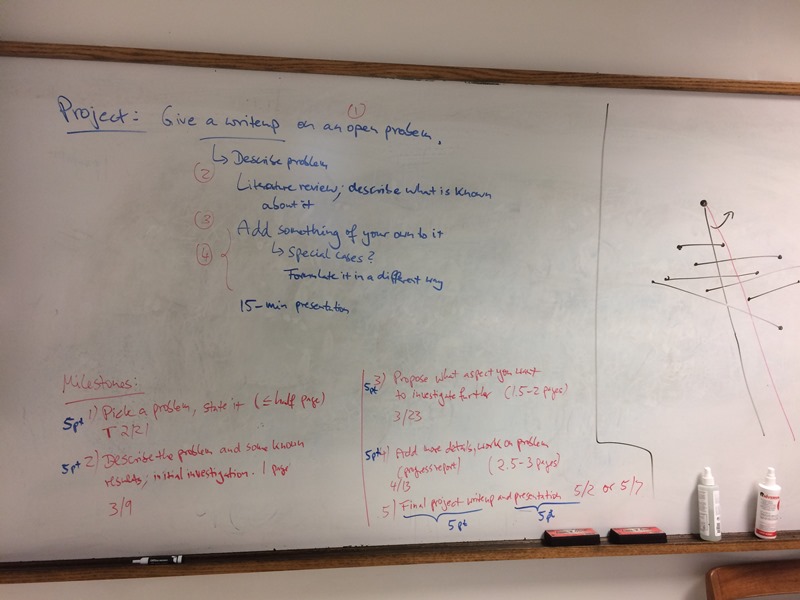 ①
Project: Give a writeup on an open problem.
↳ Describe problem
② Literature review; describe what is known
about it
③ Add something of your own to it
④ ↳ Special cases?
Formulate it in a different way
15-min presentation
Milestones:
5pt 1) Pick a problem, state it (≤ half page)
T 2/21
5pt 2) Describe the problem and some known
results; initial investigation. 1 page
3/9
5pt 3) Propose what aspect you want
to investigate further (1.5-2 pages)
3/23
5pt 4) Add more details, work on problem
(progress report) (2.5-3 pages)
4/13
5) Final project writeup and presentation 5/2 or 5/7
5pt 5pt